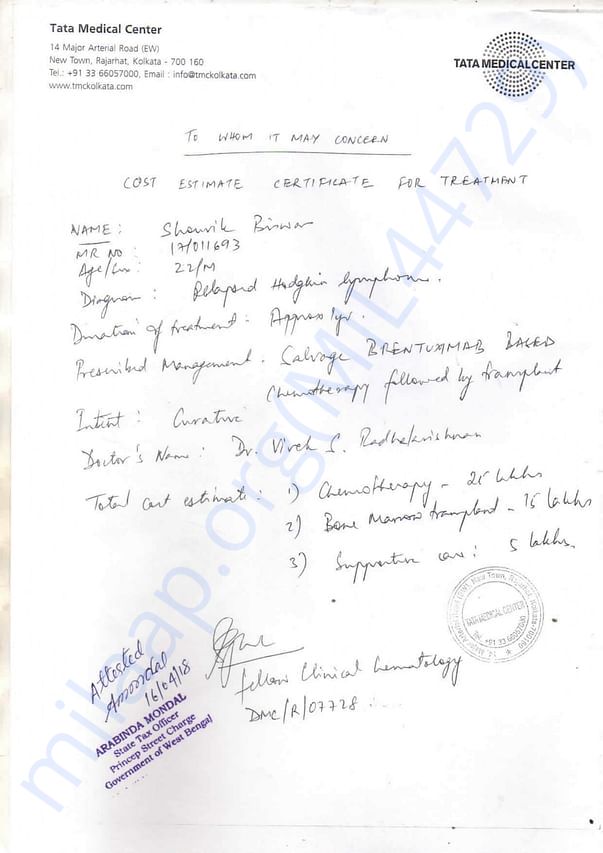 Tata Medical Center
14 Major Arterial Road (EW)
New Town, Rajarhat, Kolkata - 700 160
Tel.: +91 33 66057000, Email : info@tmckolkata.com
www.tmckolkata.com
TATA MEDICAL CENTER
TO WHOM IT MAY CONCERN
COST ESTIMATE CERTIFICATE FOR TREATMENT
NAME : Shouvik Biswas
MR NO : 17/011693
Age/Sex : 22/M
Diagnosis : Relapsed Hodgkin lymphoma.
Duration of treatment : Approx 1yr.
Prescribed Management . Salvage BRENTUXIMAB BASED
Chemotherapy followed by transplant
Intent : Curative
Doctor's Name : Dr. Vivek S. Radhakrishnan
Total cost estimate : 1) Chemotherapy - 25 lakhs
2) Bone Marrow transplant - 15 lakhs
3) Supportive care : 5 lakhs.
TATA MEDICAL CENTER
Fellow Clinical hematology
DMC/R/07728
Attested
Amondal
16/04/18
ARABINDA MONDAL
State Tax Officer
Princep Street Charge
Government of West Bengal
milaap.org(MIL447729)